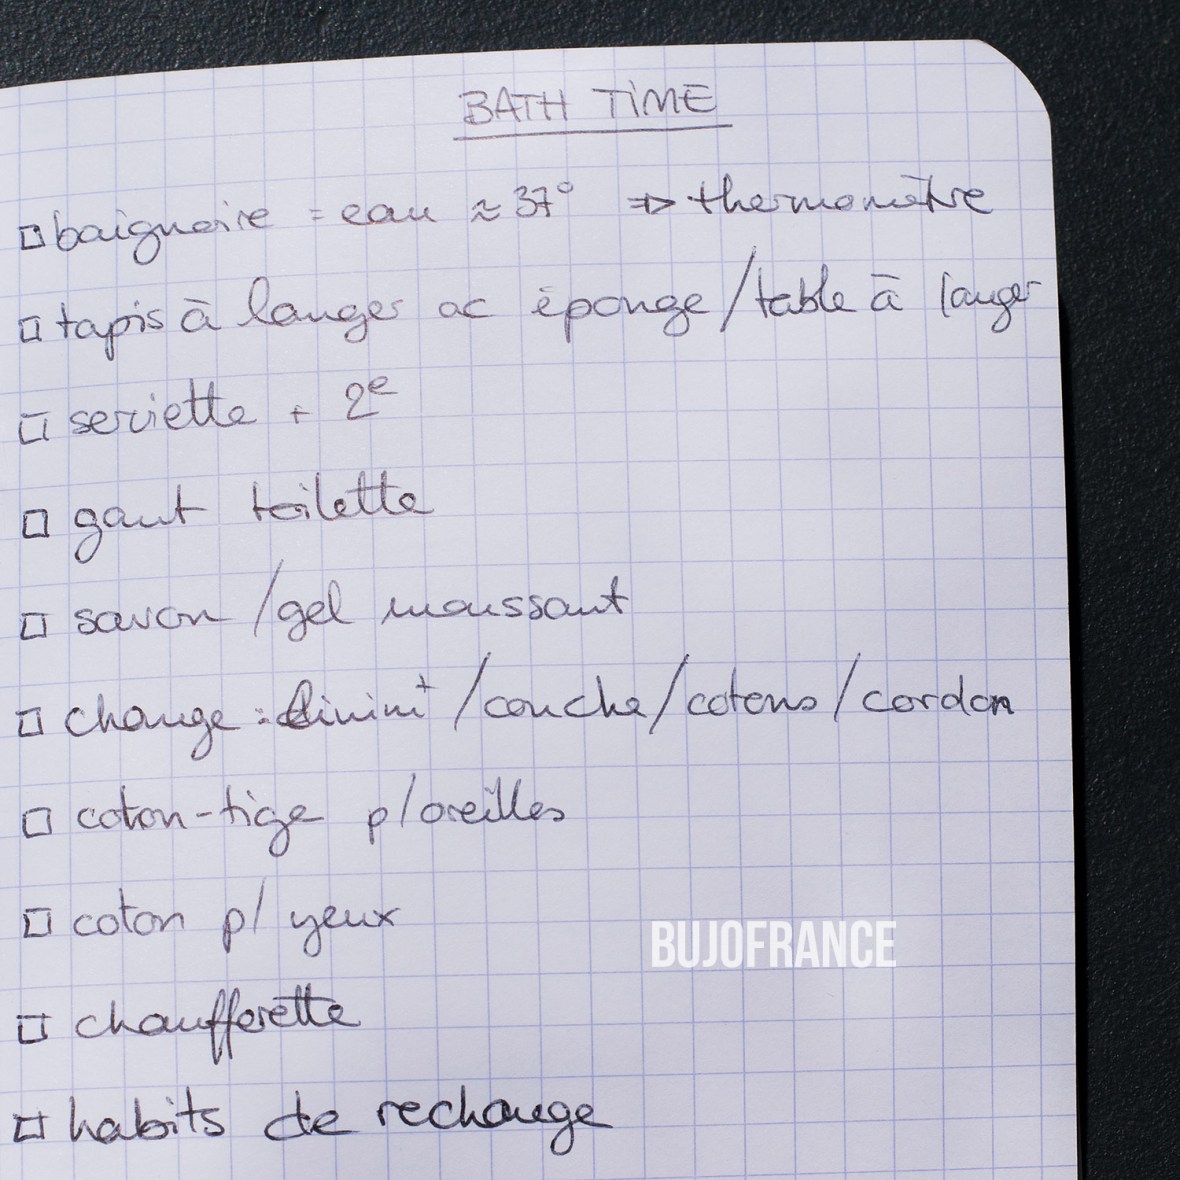 BATH TIME
□ baignoire = eau ≈ 37° ⇒ thermomètre
□ tapis à langer ac éponge / table à langer
□ serviette + 2e
□ gant toilette
□ savon / gel moussant
□ change : linim+ / couche / cotons / cordon
□ coton-tige p/ oreilles
□ coton p/ yeux
BUJOFRANCE
□ chaufferette
□ habits de rechange